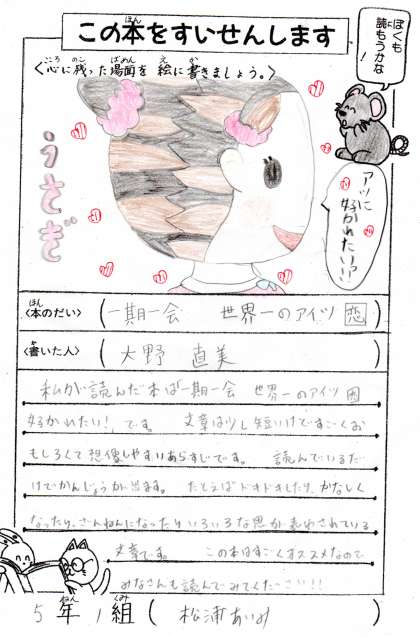 この本をすいせんします
ぼくも
読もうかな!
〈心に残った場面を 絵に書きましょう。〉
うさぎ
アツに
好かれたいァ!!
〈本のだい〉 (一期一会 世界一のアイツ 恋)
〈書いた人〉 (大野 直美)
私が読んだ本は一期一会 世界一のアイツ
好かれたい!、です。 文章は少し短いけどすごくお
もしろくて想像しやすいあらすじです。 読んでいるだ
けでかんじょうが出ます。 たとえばドキドキしたり、かなしく
なったり、ざんねんになったりいろいろな思が表わされている
文章です。 この本はすごくオススメなので
みなさんも読んでみてください!!
5年1組 (松浦あいみ